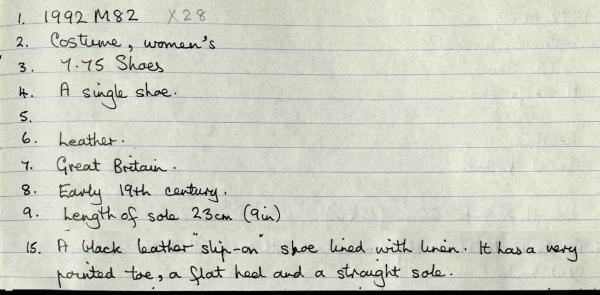 1. 1992 M82 X28
2. Costume, women's
3. 7.75 Shoes
4. A single shoe.
5.
6. Leather.
7. Great Britain.
8. Early 19th century.
9. Length of sole 23cm (9in)
15. A black leather "slip-on" shoe lined with linen. It has a very
pointed toe, a flat heel and a straight sole.